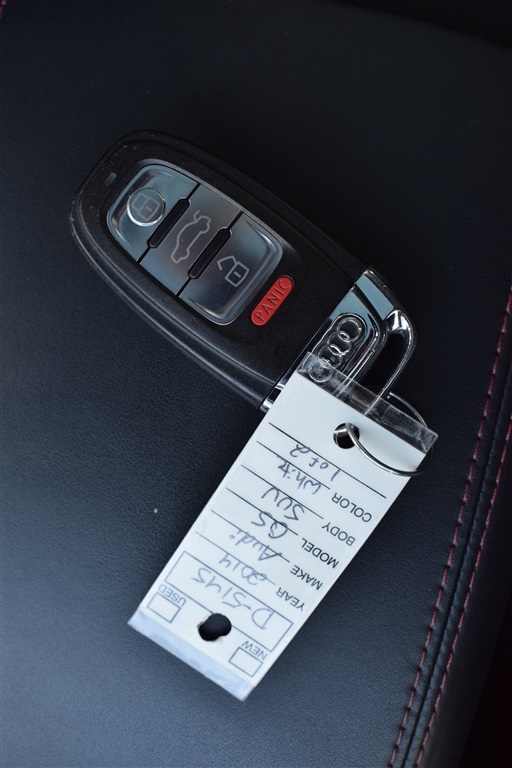 PANIC
NEW USED
D-5145
YEAR 2014
MAKE Audi
MODEL Q5
BODY SUV
COLOR White
1 of 2